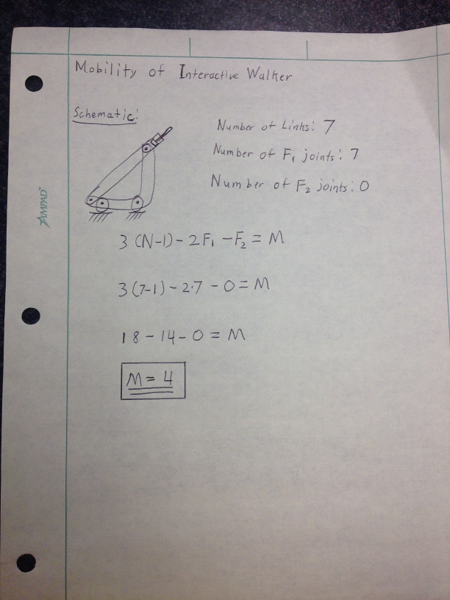 Mobility of Interactive Walker
Schematic:
Number of Links: 7
Number of F₁ joints: 7
Number of F₂ joints: 0
AMPAD
3(N-1)-2F₁-F₂=M
3(7-1)-2·7-0=M
18-14-0=M
M=4